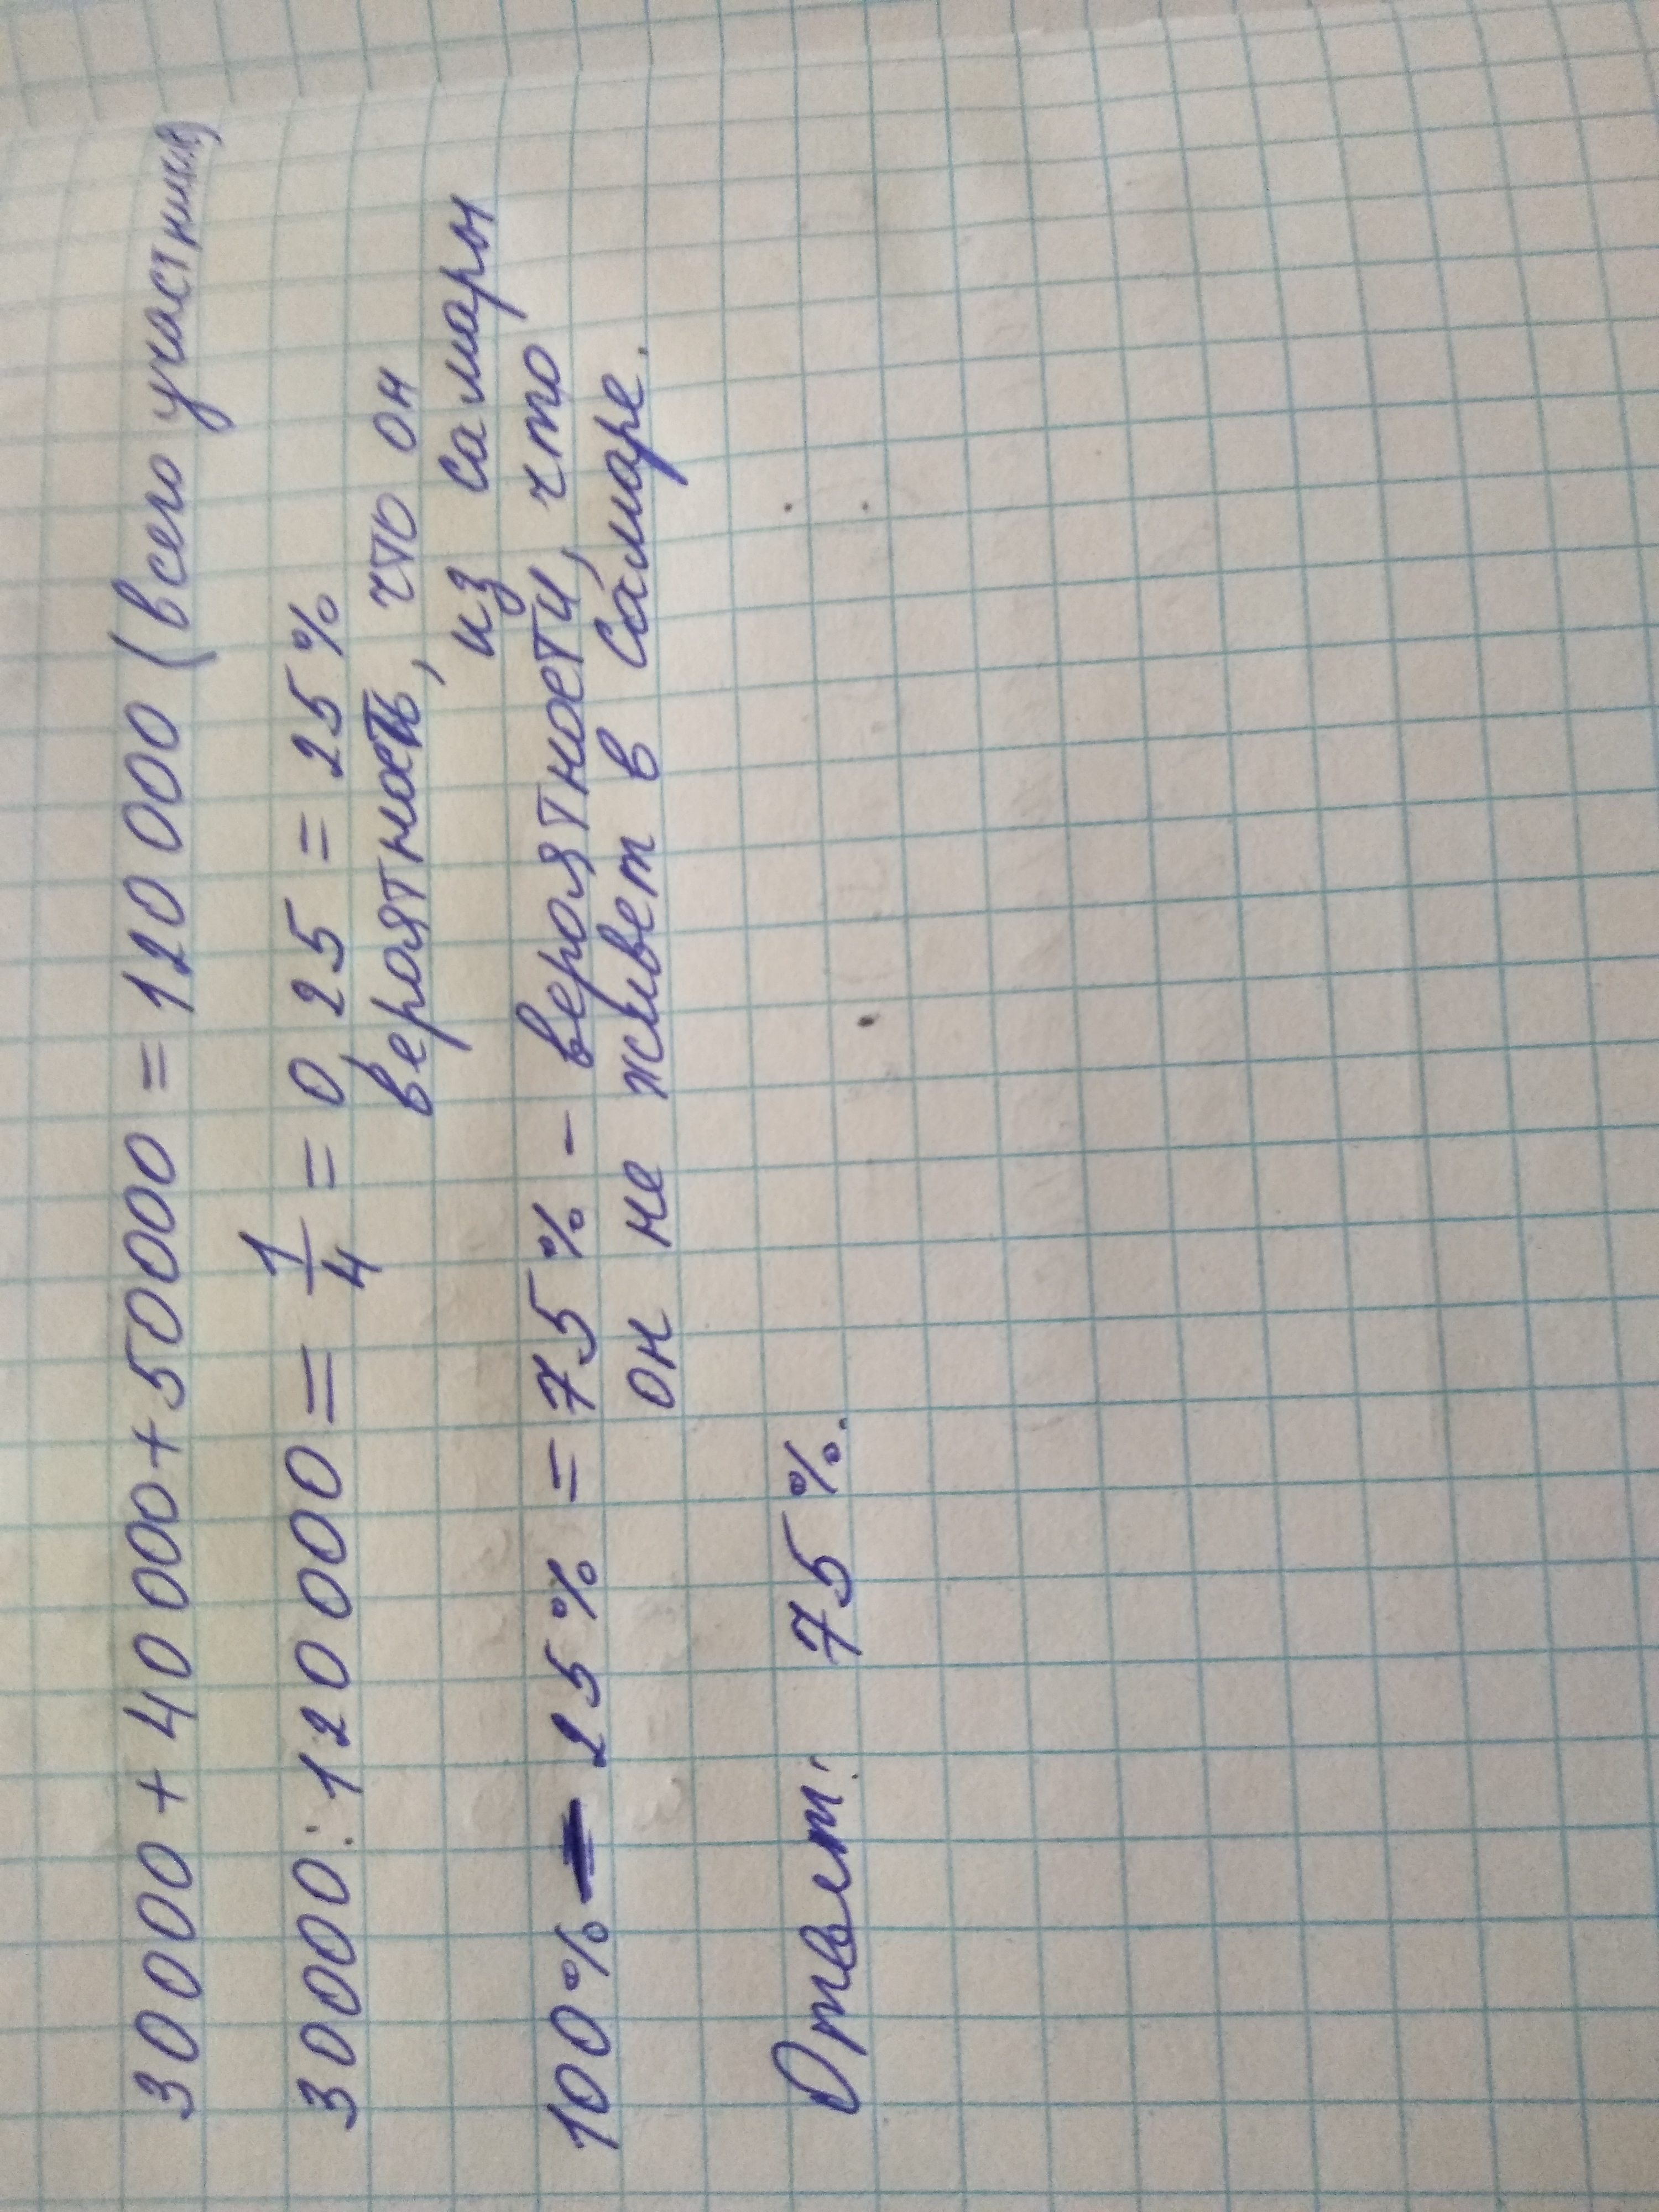 30000 + 40 000 + 50000 = 120 000 (всего участник)
30000 : 120 000 = 1/4 = 0,25 = 25%
вероятность, что он
из самары
100% - 25% = 75% - вероятности, что
он не живет в Самаре.
Ответ: 75%.